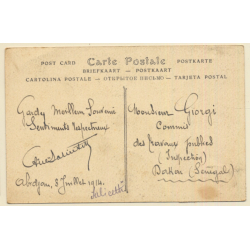 POST CARD Carte Postale POSTKARTE
BRIEFKAART — POSTKAART
CARTOLINA POSTALE — ОТКРЫТОЕ ПИСЬМО — TARJETA POSTAL
Gardez Meilleur Souvenir
Sentiments respectueux
Abidjan, 3 Juillet 1914
Monsieur Giorgi
Commis
des travaux publics
(Inspection)
(Sénégal)